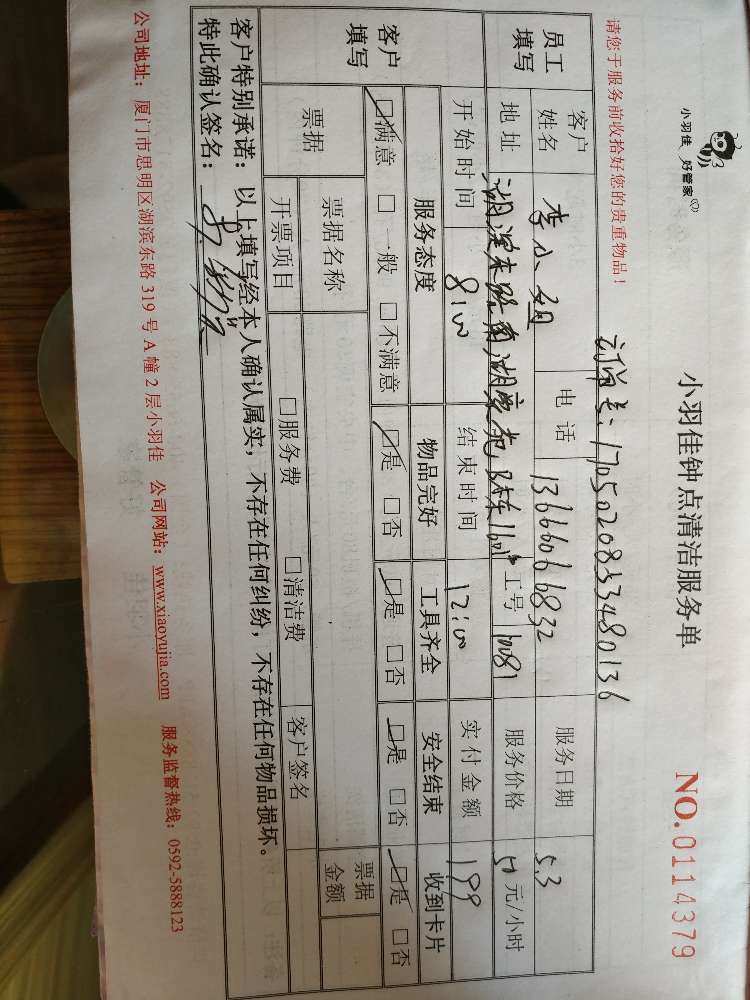 小羽佳 好管家
小羽佳钟点清洁服务单
NO.0114379
请您于服务前收拾好您的贵重物品！
订单号：1705020833480136
员工填写 客户姓名 李小姐 电话 13666066832 服务日期 5.3
地址 湖滨东路南湖豪苑 1601# 工号 10081 服务价格 50 元/小时
开始时间 8:00 结束时间 12:00 实付金额 199
客户填写 服务态度 物品完好 工具齐全 安全结束 收到卡片
☑满意 □一般 □不满意 ☑是 □否 ☑是 □否 ☑是 □否 ☑是 □否
票据 票据名称 票据金额
开票项目 □服务费 □清洁费 客户签名
客户特别承诺：以上填写经本人确认属实，不存在任何纠纷，不存在任何物品损坏。
特此确认签名：
公司地址：厦门市思明区湖滨东路 319 号 A 幢 2 层小羽佳 公司网站：www.xiaoyujia.com 服务监督热线：0592-5888123